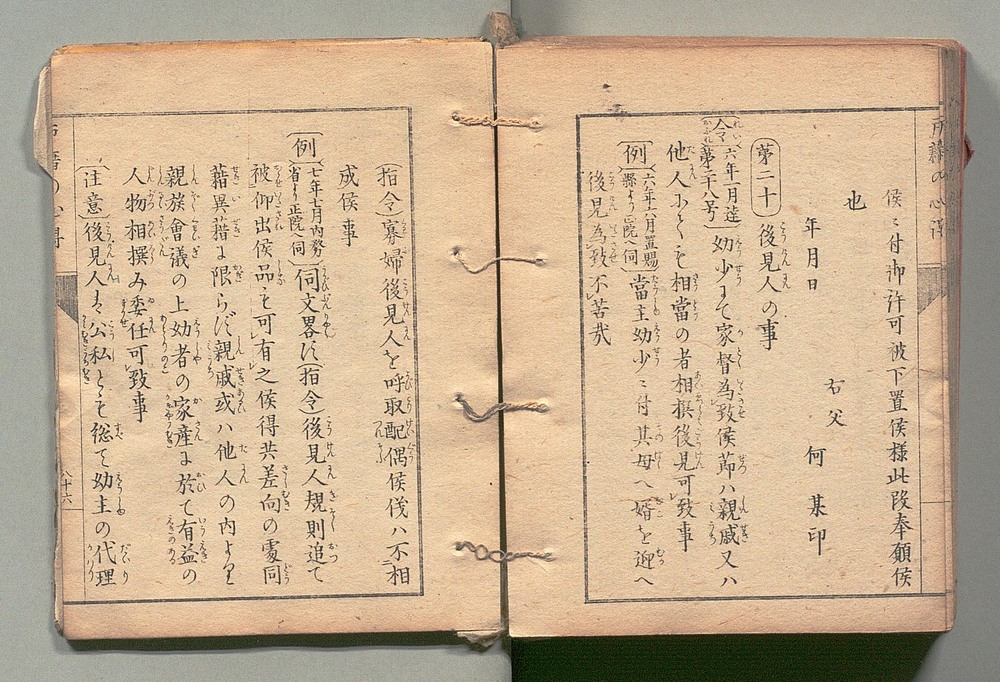 候ニ付御許可被下置候様此段奉願候
也
年月日
右父 何 某印
第二十 後見人の事
令 六年一月達第二十八号 幼少にて家督為致候節ハ親戚又ハ
他人にても相當の者相撰後見可致事
例 六年六月置賜縣より正院へ伺 當主幼少ニ付其母へ婿を迎へ
後見為致不苦哉
(指令)寡婦後見人を呼取配偶候儀ハ不相
成候事
例 七年七月内務省より正院へ伺 伺文畧す(指令)後見人規則追て
被仰出候品も可有之候得共差向の處同
藉異藉に限らず親戚或ハ他人の内より
親族會議の上幼者の家産に於て有益の
人物相撰み委任可致事
(注意)後見人は公私とも総て幼主の代理
八十六